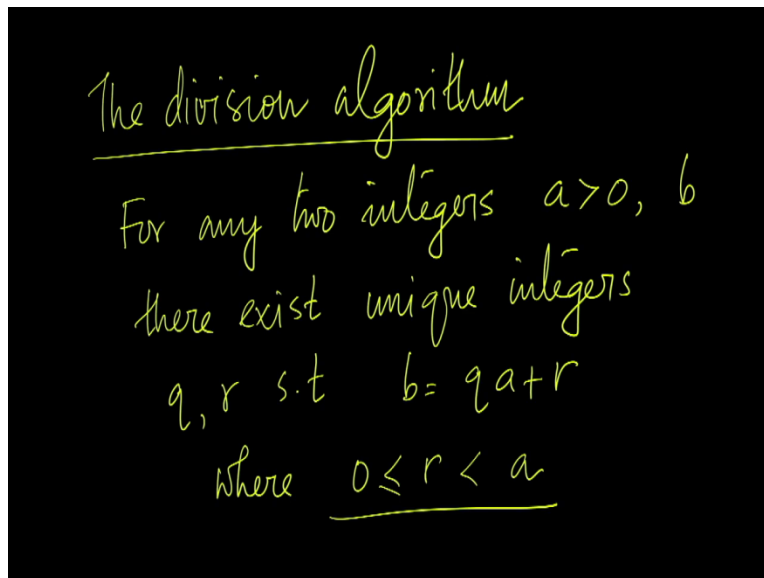 The division algorithm
For any two integers a>0, b
there exist unique integers
q, r s.t b= qa+r
where 0≤ r < a